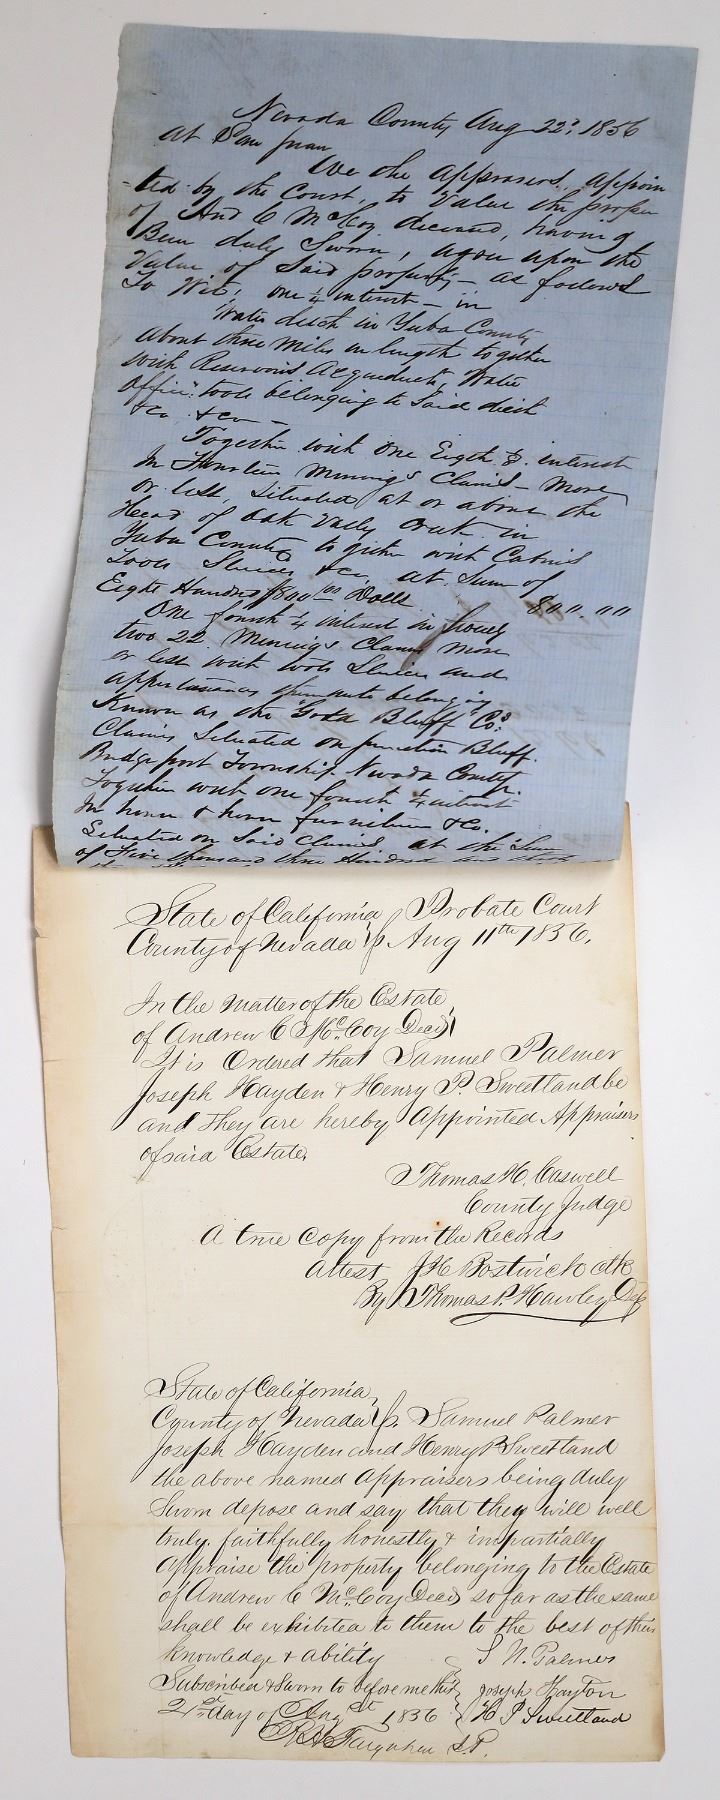 Nevada County Aug 22d 1856
At San Juan
We the appraisers, appoin
-ted by the Court, to Value the proper
of And C McCoy deceased, having
Been duly Sworn, agree upon the
Value of Said property - as follows
To Wit; one 1/4 interest - in
Water ditch in Yuba County
about three Miles in length together
with Reservoirs Acqueducts, Water
office: tools belonging to Said ditch
&co &co -
Together with One Eigth 8 interest
In Mining's Claims - More
or less, Situated at or above the
Head of Oak Vally Creek in
Yuba County together with Cabins
Tools Sluices &co, at Sum of
Eight Hundred Dolls 80". ""
One fourth 1/4 interest in
two 22 Mining's Claims More
or less with tools Sluices and
appertanances belonging
Known as the Gold Bluff Co's
Claims Situated on Junction Bluff.
Bridgeport Township, Nevada County.
Together with one fourth 1/4 interest
In house & house furniture &Co.
Situated on Said Claims, at the Sum
of Five thousand three Hundred
State of California } Probate Court
County of Nevada } Aug 11th 1856.
In the Matter of the Estate
of Andrew C McCoy Decd
It is Ordered that Samuel Palmer
Joseph Hayden & Henry P. Sweetland be
and they are hereby Appointed Appraisers
of said Estate.
Thomas H. Caswell
County Judge
A true Copy from the Records
Attest J H Bostwick clk
By Thomas P. Hawley Dep
State of California
County of Nevada } Samuel Palmer
Joseph Hayden and Henry P Sweetland
the above named Appraisers being duly
Sworn depose and say that they will well
truly, faithfully honestly & impartially
Appraise the property belonging to the Estate
of Andrew C McCoy Decd so far as the same
shall be exhibited to them to the best of their
knowledge & ability S W. Palmer
Subscribed & Sworn to before me this Joseph Hayton
21st day of Aug 1856 H P Sweetland